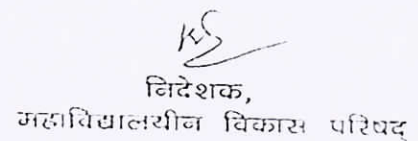 निदेशक,
महाविद्यालयीन विकास परिषद्